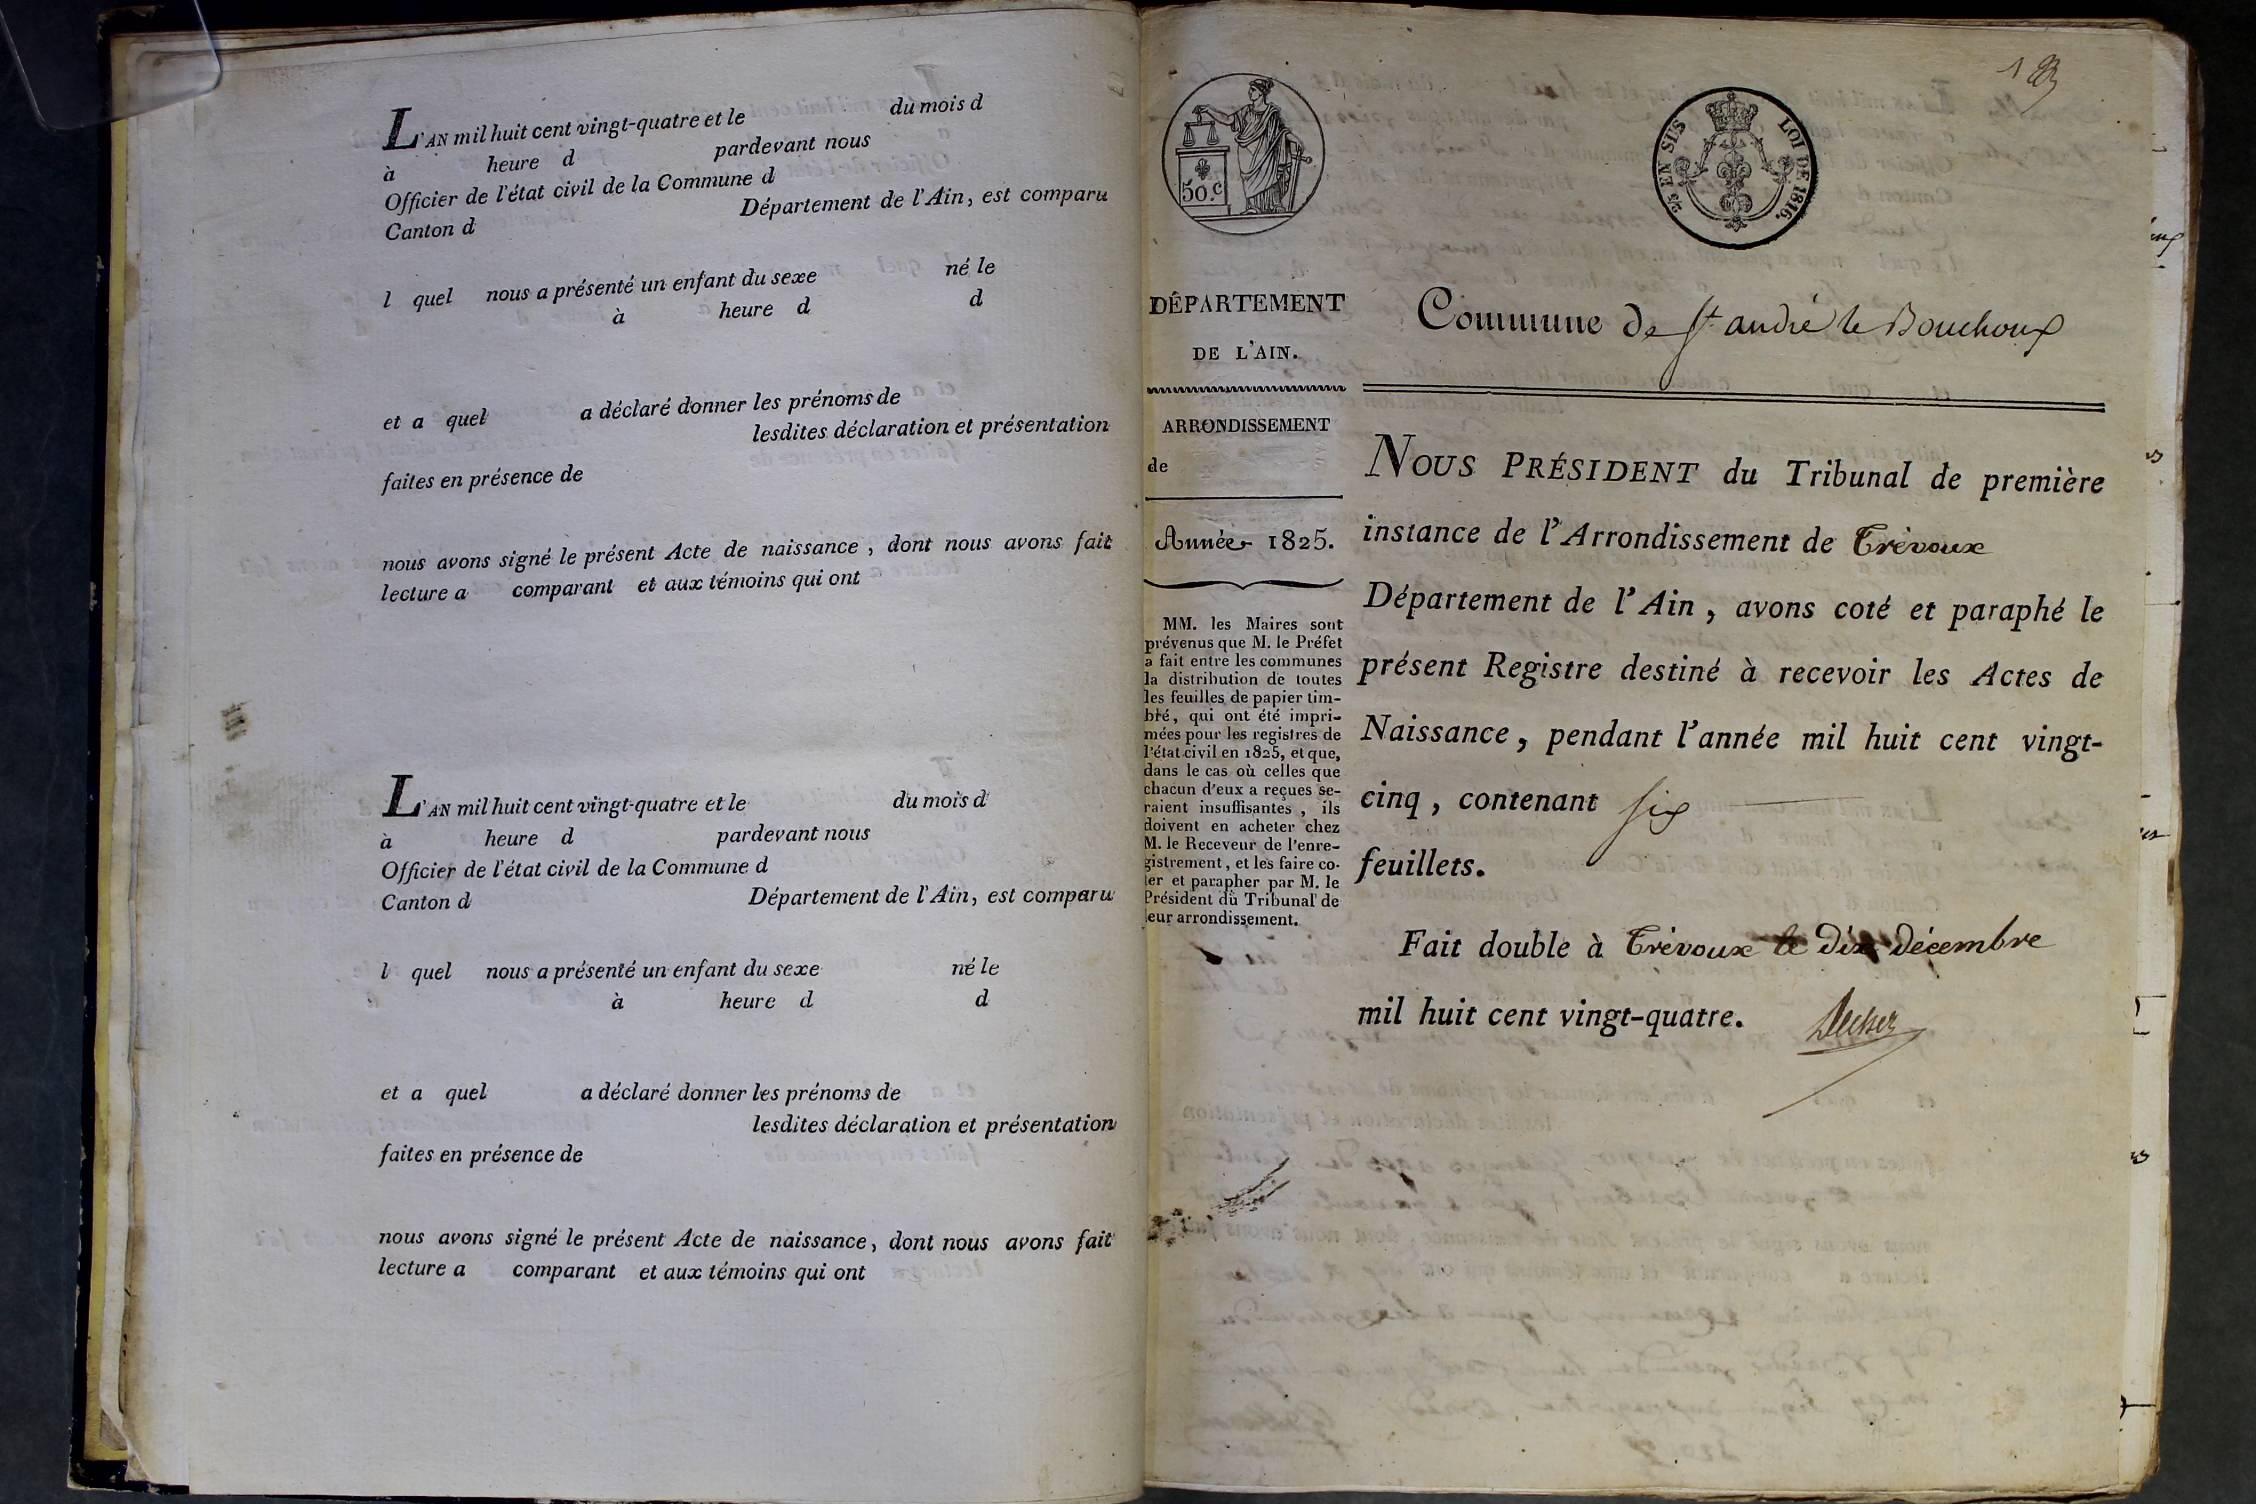 L'AN mil huit cent vingt-quatre et le du mois d
à heure d pardevant nous
Officier de l'état civil de la Commune d
Canton d Département de l'Ain, est comparu
l quel nous a présenté un enfant du sexe né le
à heure d d
et a quel a déclaré donner les prénoms de
lesdites déclaration et présentation
faites en présence de
nous avons signé le présent Acte de naissance, dont nous avons fait
lecture a comparant et aux témoins qui ont
L'AN mil huit cent vingt-quatre et le du mois d
à heure d pardevant nous
Officier de l'état civil de la Commune d
Canton d Département de l'Ain, est comparu
l quel nous a présenté un enfant du sexe né le
à heure d d
et a quel a déclaré donner les prénoms de
lesdites déclaration et présentation
faites en présence de
nous avons signé le présent Acte de naissance, dont nous avons fait
lecture a comparant et aux témoins qui ont
50.c
2/5 EN SUS LOI DE 1816.
DÉPARTEMENT
DE L'AIN.
ARRONDISSEMENT
de
Année 1825.
MM. les Maires sont
prévenus que M. le Préfet
a fait entre les communes
la distribution de toutes
les feuilles de papier tim-
bré, qui ont été impri-
mées pour les registres de
l'état civil en 1825, et que,
dans le cas où celles que
chacun d'eux a reçues se-
raient insuffisantes, ils
doivent en acheter chez
M. le Receveur de l'enre-
gistrement, et les faire co-
ter et parapher par M. le
Président du Tribunal de
leur arrondissement.
Commune de St. andré le Bouchoux
NOUS PRÉSIDENT du Tribunal de première
instance de l'Arrondissement de Trévoux
Département de l'Ain, avons coté et paraphé le
présent Registre destiné à recevoir les Actes de
Naissance, pendant l'année mil huit cent vingt-
cinq, contenant six
feuillets.
Fait double à Trévoux le dix décembre
mil huit cent vingt-quatre.